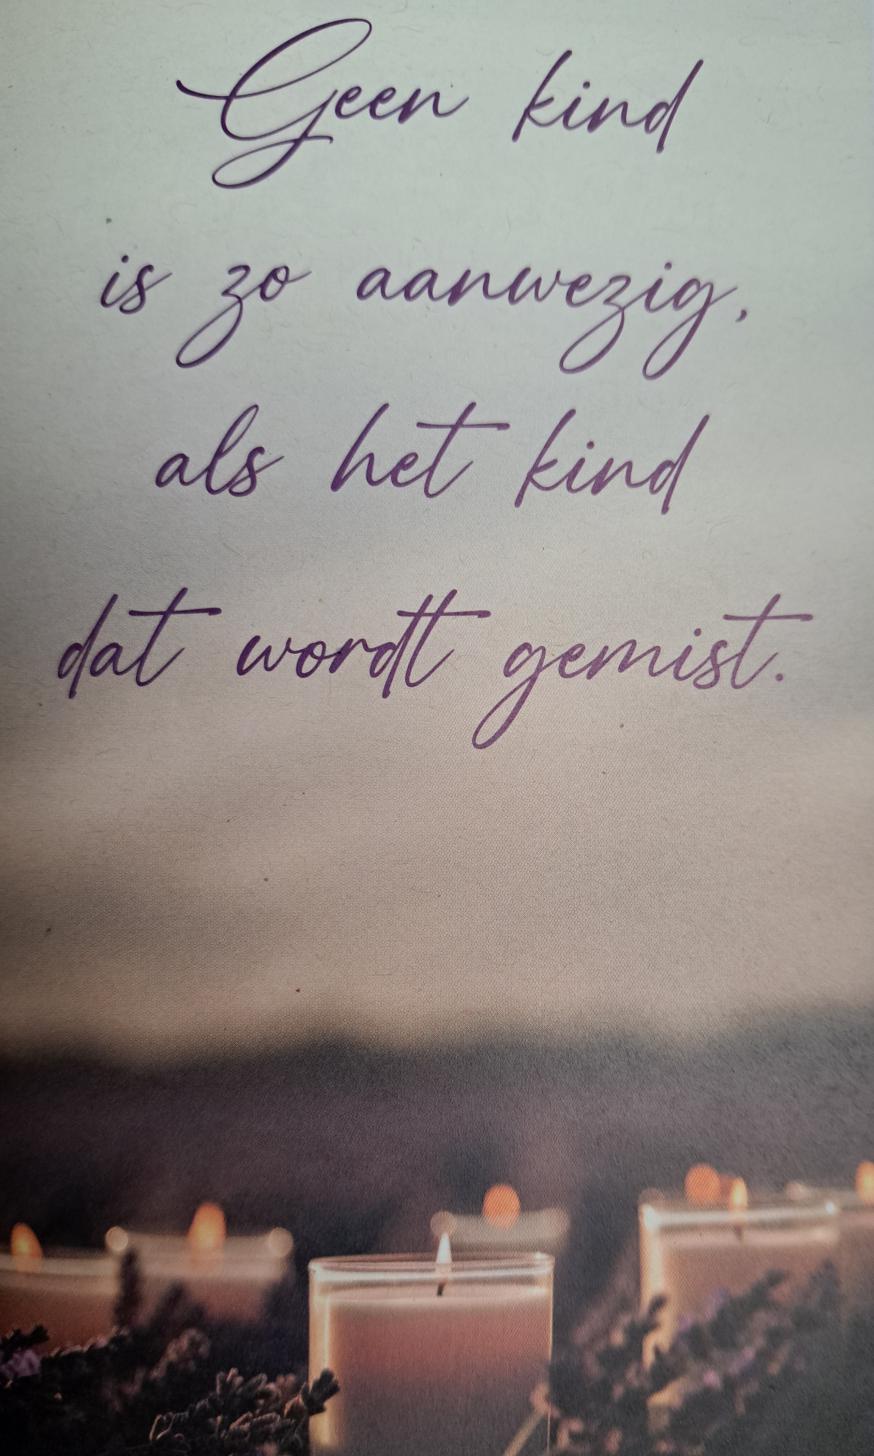 Geen kind
is zo aanwezig,
als het kind
dat wordt gemist.